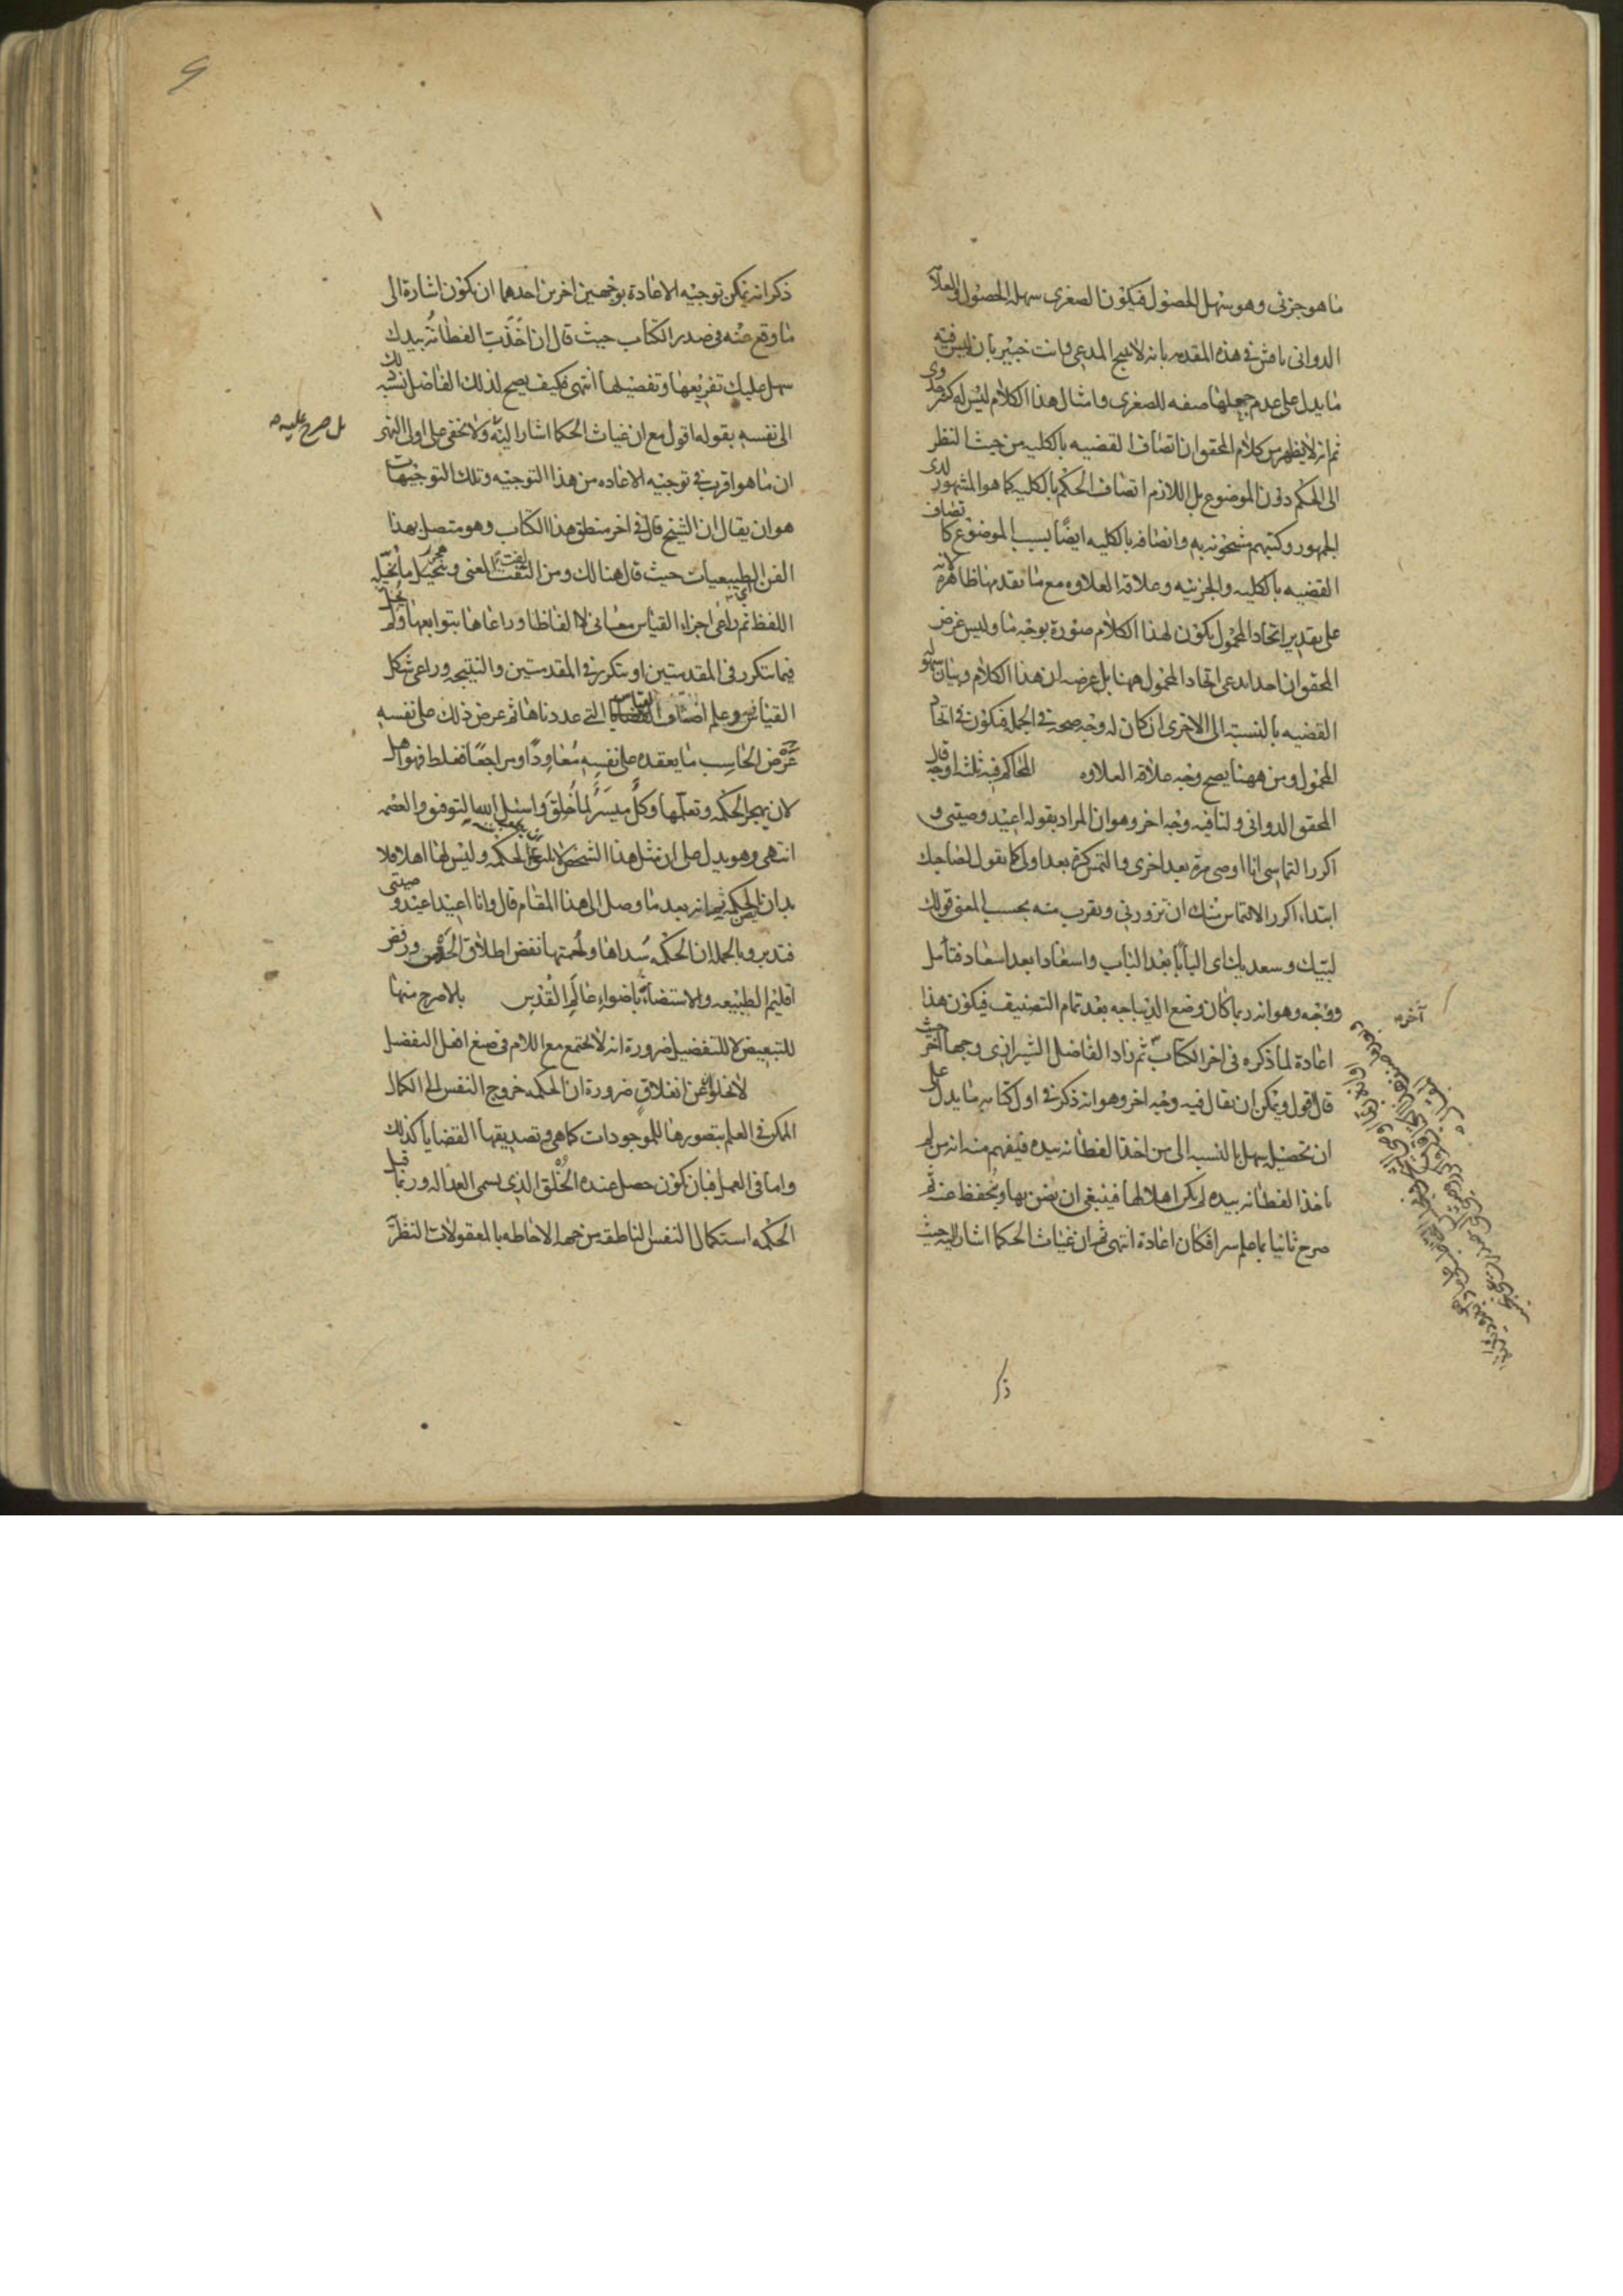 ما هو جزئى وهو سهل الحصول فيكون الصغرى سهله الحصول والعلامة
الدوانى ناقش فى هذه المقدمه بانه لا ينتج المدعى وانت خبير بان ليس فيه
ما يدل على عدم جعلها صفه للصغرى وامثال هذا الكلام ليس له كثير جدوى
ثم انه لا يظهر من كلام المحقق ان اتصاف القضيه بالكليه من حيث النظر
الى الحكم دون الموضوع بل اللازم اتصاف الحكم بالكليه كما هو المشهور لدى
الجمهور وكتبهم مشحونه به واتصافه بالكليه ايضا بسبب الموضوع كاتصاف
القضيه بالكليه والجزئيه وعلاقه العلاوه مع ما تقدمها ظاهره لانه
على تقدير اتحاد المحمول يكون لهذا الكلام صورة بوجه ما وليس غرض
المحقق ان احدا يدعى اتحاد المحمول ههنا بل غرضه ان هذا الكلام وبيان سهولة
القضيه بالنسبة الى الاخرى ان كان له وجه صحه فى الجمله فيكون فى اتحاد
المحمول ومن ههنا يصح وجه علاقه العلاوه المحاكم فيه ثلثه اوجه قال
المحقق الدوانى ولنا فيه وجه اخر وهو ان المراد بقوله اعيد وصيتى و
اكرر التماسى انا اوصى مرة بعد اخرى والتمس كرة بعد اولى كما تقول لصاحبك
ابتداء اكرر الالتماس منك ان تزورنى ويقرب منه بحسب المعنى قولك
لبيك وسعديك اى البابا بعد الباب واسعادا بعد اسعاد فتأمل
ووجه وهو انه ربما كان وضع الديباجه بعد تمام التصنيف فيكون هذا
آخر
اعادة لما ذكره فى اخر الكتاب ثم زاد الفاضل الشيرازى وجها اخر حيث
قال اقول ويمكن ان يقال فيه وجه اخر وهو انه ذكر فى اول كتابه ما يدل على
ان تحصيل يسهل بالنسبه الى من اخذ الفطانه بيده فيفهم منه انه من لم
ياخذ الفطانه بيده لم يكن اهلا لها فينبغى ان يضن بها ويحفظ عنه ثم
صرح ثانيا بما علم سرا فكان اعادة انتهى ثم ان غياث الحكما اشار اليه حيث
ذكر
ذكر انه يمكن توجيه الاعادة بوجهين اخرين احدهما ان يكون اشارة الى
ما وقع منه فى صدر الكتاب حيث قال ان اخذت الفطانة بيدك
سهل عليك تفريعها وتفصيلها انتهى فكيف يصح لذلك الفاضل نسبه ذلك
الى نفسه بقوله اقول مع ان غياث الحكما اشار اليه ولا يخفى على اولى النهى
بل صرح عليه
ان ما هو اقرب فى توجيه الاعاده من هذا التوجيه وتلك التوجيهات
هو ان يقال ان الشيخ قال فى اخر منطق هذا الكتاب وهو متصل بهذا
الفن الطبيعيات حيث قال هنالك ومن التفت لفت المعنى وهجر ما يخيله
اللفظ ثم راعى اجزاء القياس معانى لا الفاظا وراعاها بتوابعها ولم يخل
فيما يتكرر فى المقدمتين او يتكرر فى المقدمتين والنتيجه وراعى شكل
القياس وعلم اصناف القضايا التى عددناها ثم عرض ذلك على نفسه
عرض الحاسب ما يعقده على نفسه معاودا ومراجعا فغلط فهو اهل
لان يهجر الحكمه وتعلمها وكل ميسر لما خلق واسئل الله التوفيق والعصمه
انتهى وهو يدل على ان مثل هذا الشخص لا يليق بالحكمه وليس لها اهلا فلا
بد ان يضن الحكمه ثم انه بعد ما وصل الى هذا المقام قال وانا اعيد اعيد وصيتى
فتدبر وبالجمله ان الحكمه سداها ولحمتها نفض اطلاق الحواس ورفض
اقليم الطبيعه والاستضاءة باضواء عالم القدس بالاصرح منها
للتبعيض لا للتفضيل ضرورة انه لا يجتمع مع اللام فى صيغ افعل التفضيل
لا يخلو عن انغلاق ضرورة ان الحكمه خروج النفس الى الكمال
الممكن فى العلم بتصورها للموجودات كما هى وتصديقها القضايا كذلك
واما فى العمل فبان يكون حصل عنده الخلق الذى يسمى العداله وربما قيل
الحكمه استكمال النفس الناطقه من جهه الاحاطه بالمعقولات النظرية